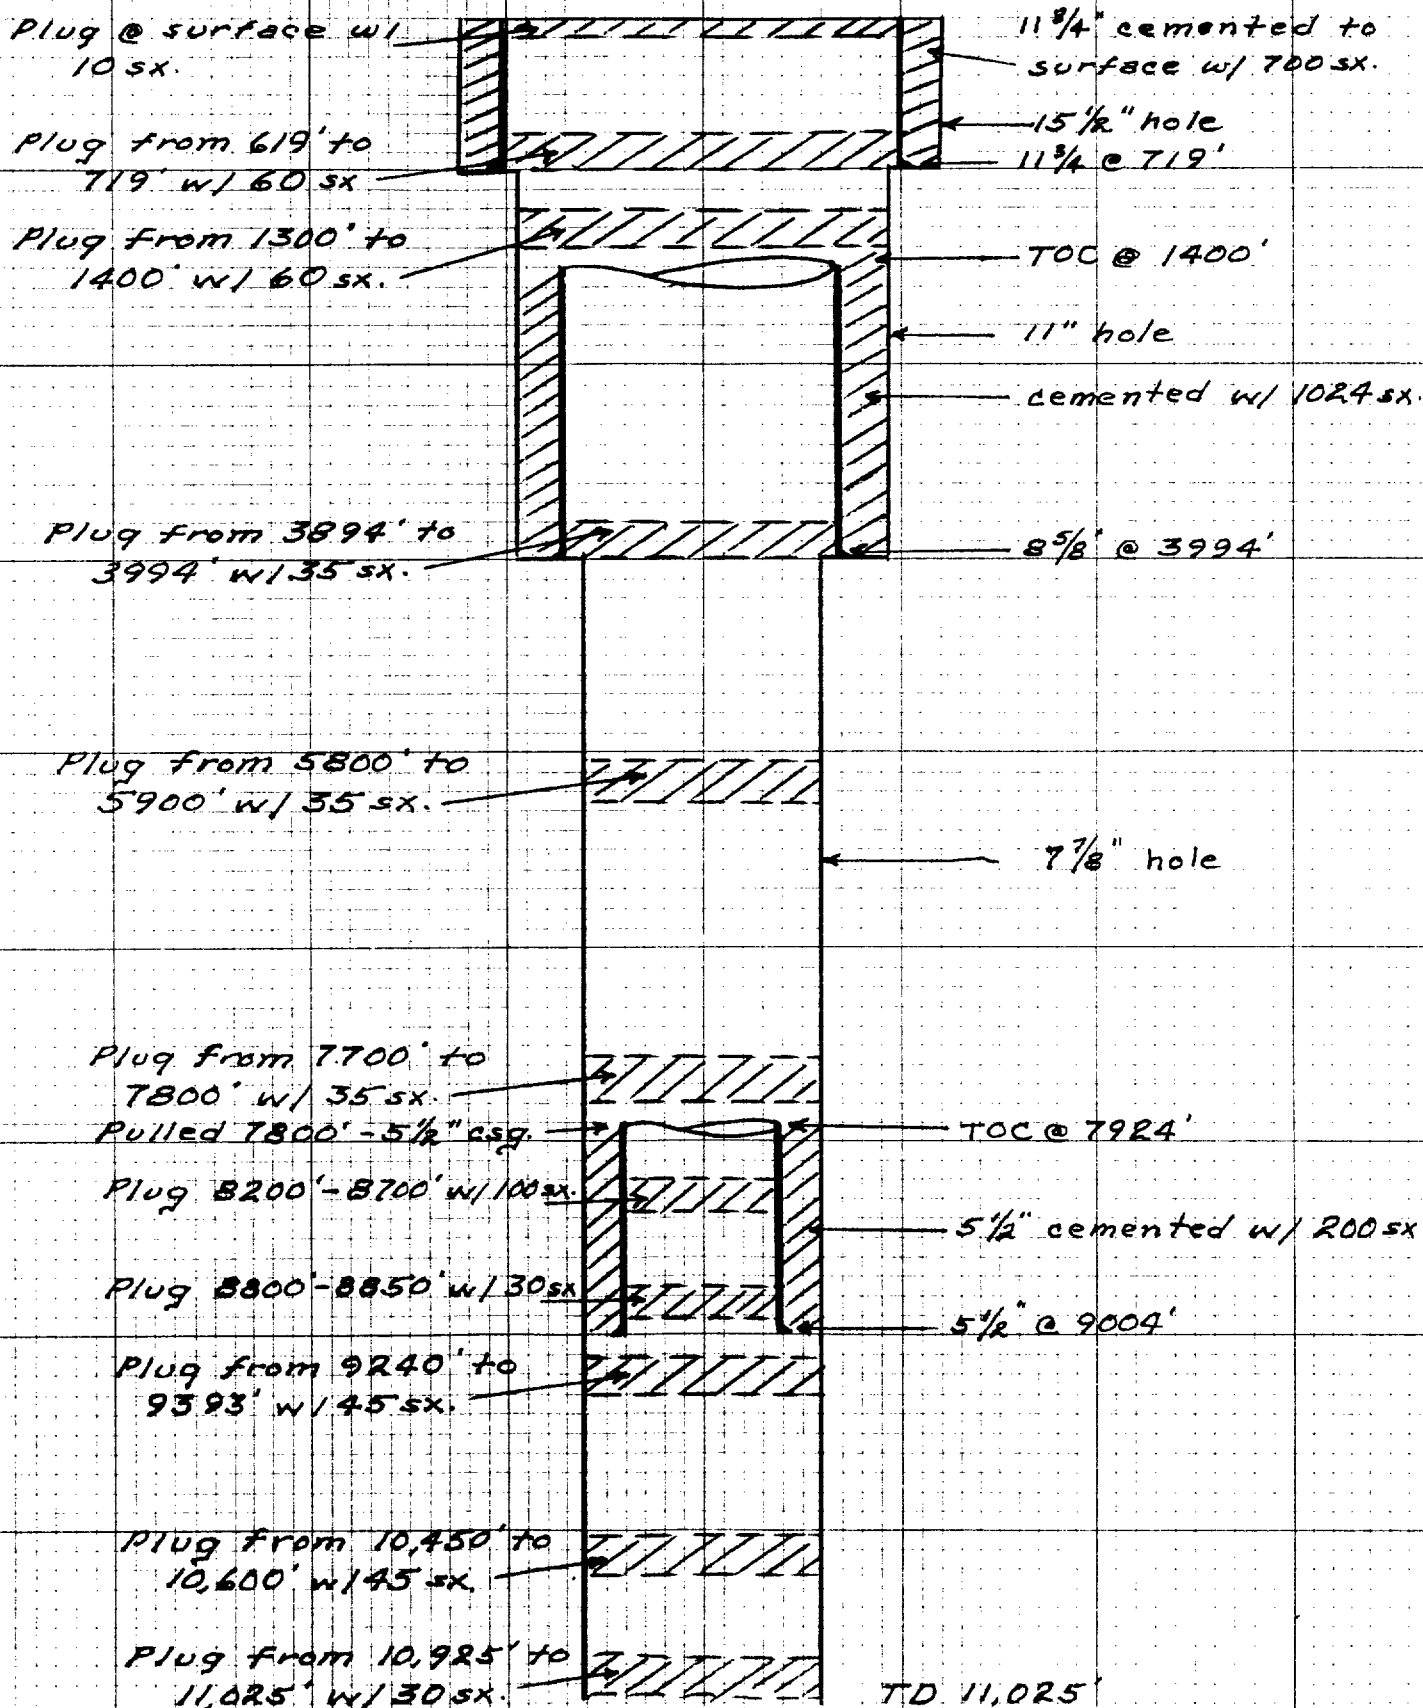 Plug @ surface w/
10 sx.
Plug from 619' to
719' w/ 60 sx
Plug from 1300' to
1400' w/ 60 sx.
Plug from 3894' to
3994' w/ 35 sx.
Plug from 5800' to
5900' w/ 35 sx.
Plug from 7700' to
7800' w/ 35 sx.
Pulled 7800' - 5 1/2" csg.
Plug 8200'-8700' w/ 100 sx.
Plug 8800'-8850' w/ 30 sx
Plug from 9240' to
9393' w/ 45 sx.
Plug from 10,450' to
10,600' w/ 45 sx.
Plug from 10,925' to
11,025' w/ 30 sx.
11 3/4" cemented to
surface w/ 700 sx.
15 1/2" hole
11 3/4 @ 719'
TOC @ 1400'
11" hole
cemented w/ 1024 sx.
8 5/8" @ 3994'
7 7/8" hole
TOC @ 7924'
5 1/2" cemented w/ 200 sx
5 1/2" @ 9004'
TD 11,025'